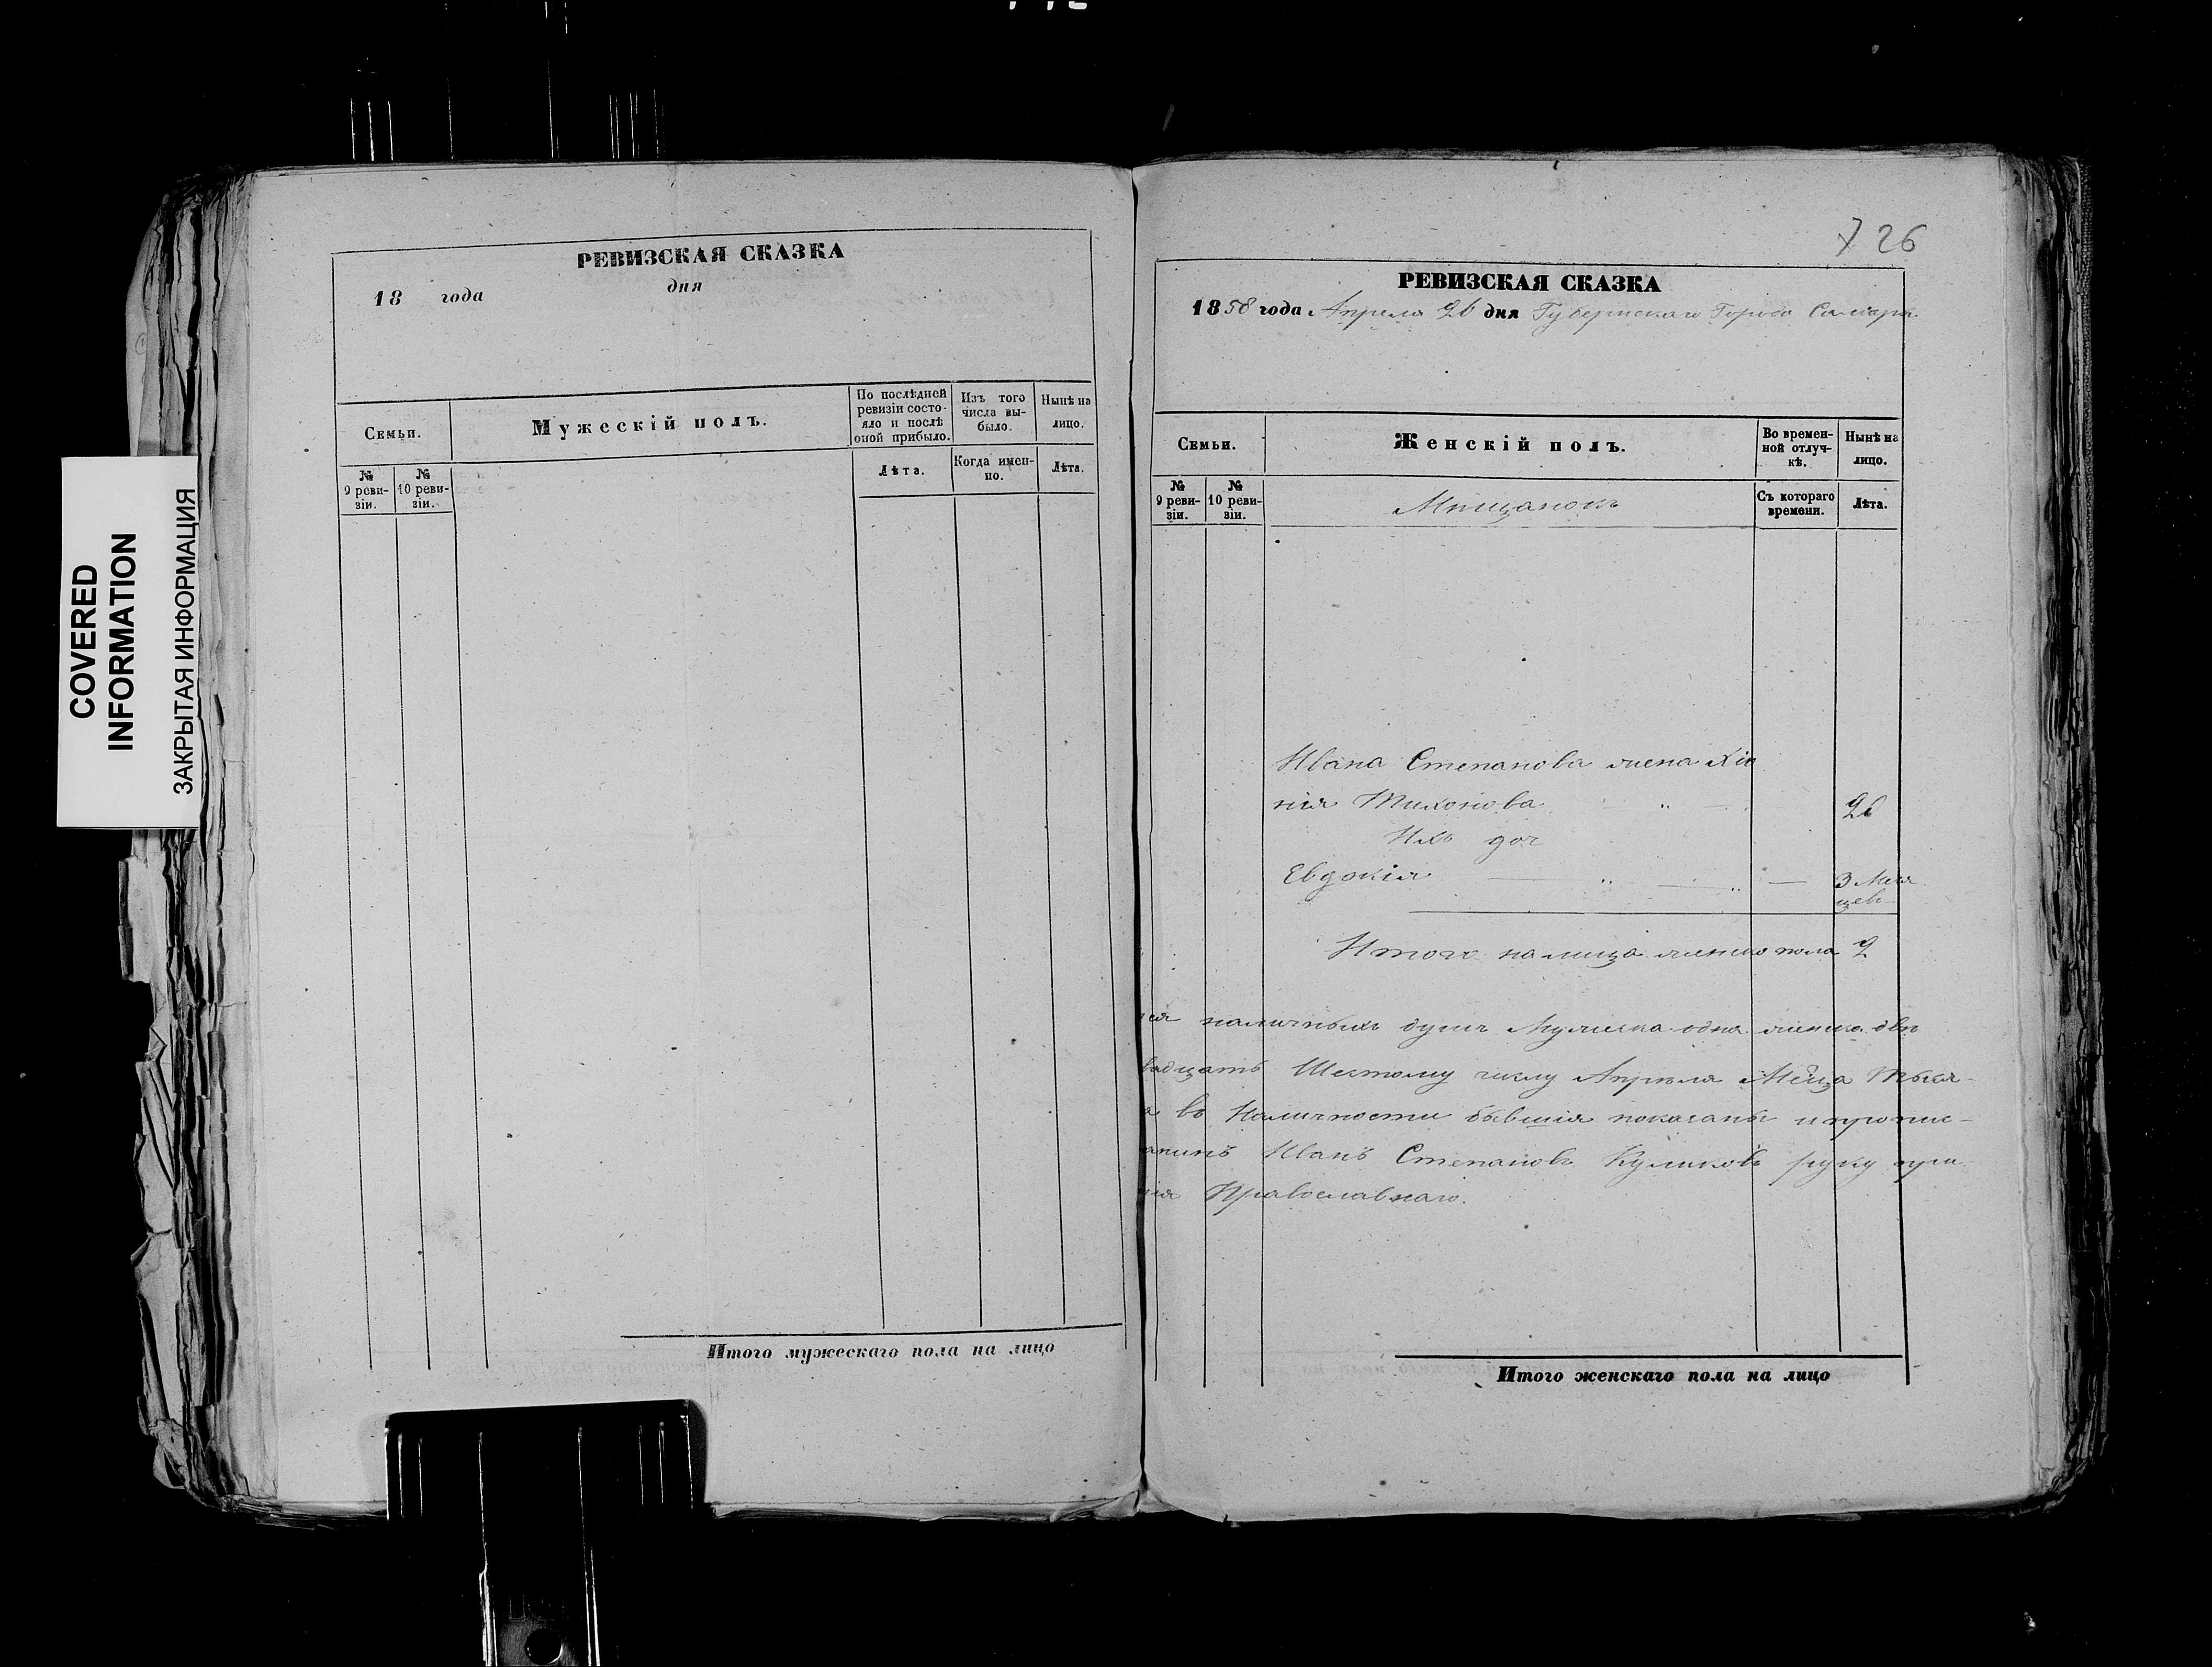 COVERED
INFORMATION
ЗАКРЫТАЯ ИНФОРМАЦИЯ
РЕВИЗСКАЯ СКАЗКА
18 года дня
Семьи.
Мужескій полъ.
По послѣдней ревизіи состо-
яло и послѣ оной прибыло.
Изъ того числа вы-
было.
Нынѣ на лицо.
№ 9 реви-
зіи.
№ 10 реви-
зіи.
Лѣта.
Когда имен-
но.
Лѣта.
Итого мужескаго пола на лицо
726
РЕВИЗСКАЯ СКАЗКА
1858 года Апреля 26 дня Губернскаго Города Самары
Семьи.
Женскій полъ.
Во времен-
ной отлуч-
кѣ.
Нынѣ на лицо.
№ 9 реви-
зіи.
№ 10 реви-
зіи.
Мещанокъ
Съ котораго времени.
Лѣта.
Ивана Степанова жена
нія Тихонова
Ихъ доч
Евдокія 3 Меся
цев
Итого налицо женско пола 2
наличныхъ душъ Мужеска одна женска двѣ
вадцать Шестому числу Апреля Мсца Тыся-
а во Наличности бывшія показаны и пропис-
анинъ Иванъ Степановъ Куликовъ руку при
нія Православнаго.
Итого женскаго пола на лицо